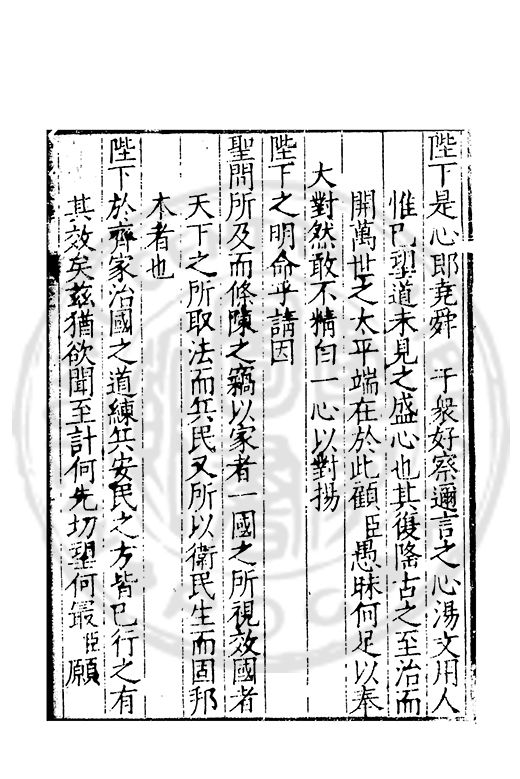 陛下是心即堯舜 于衆好察邇言之心湯文用人
惟已望道未見之盛心也其復隆古之至治而
開萬世之太平端在於此顧臣愚昧何足以奉
大對然敢不精白一心以對揚
陛下之明命乎請因
聖問所及而條陳之竊以家者一國之所視效國者
天下之所取法而兵民又所以衛民生而固邦
本者也
陛下於齊家治國之道練兵安民之方皆已行之有
其效矣兹猶欲聞至計何先切望何最臣願